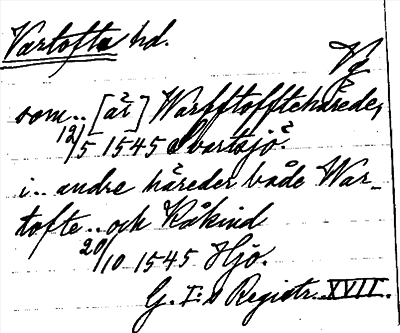 Vartofta hd.
Vg
som .. [är] Warfftofftehärede,
12/5 1545 Svartsjö.
i .. andre häreder både War-
tofte .. och Kåkind
20/10 1545 Hjo.
G. I:s Registr. XVII.